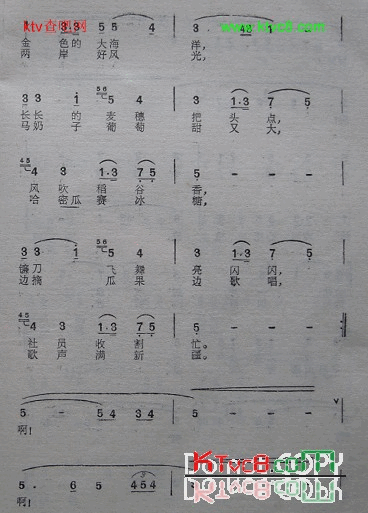 ktv查吧网
金 色的 大海 洋,
两 岸 好风 光,
3 3 1 5 4 3 1·3 7 5
长长 的 麦穗 把 头 点,
马奶 子 葡萄 甜 又 大,
4 3 1·3 7 5 5 - - -
风 吹 稻谷 香,
哈 密瓜 赛冰 糖,
3 3 1 5 4 3 1·3 7 5
镰刀 飞舞 亮 闪 闪,
边摘 瓜果 边 歌 唱,
4 3 1·3 7 5 5 - - -
社 员 收割 忙。
歌 声 满新 疆。
5 - 5 4 3 4 5 4 5 - - - V
啊!
5 · 6 5 4 5 4
啊!
KTvc8
DO NOT COPY